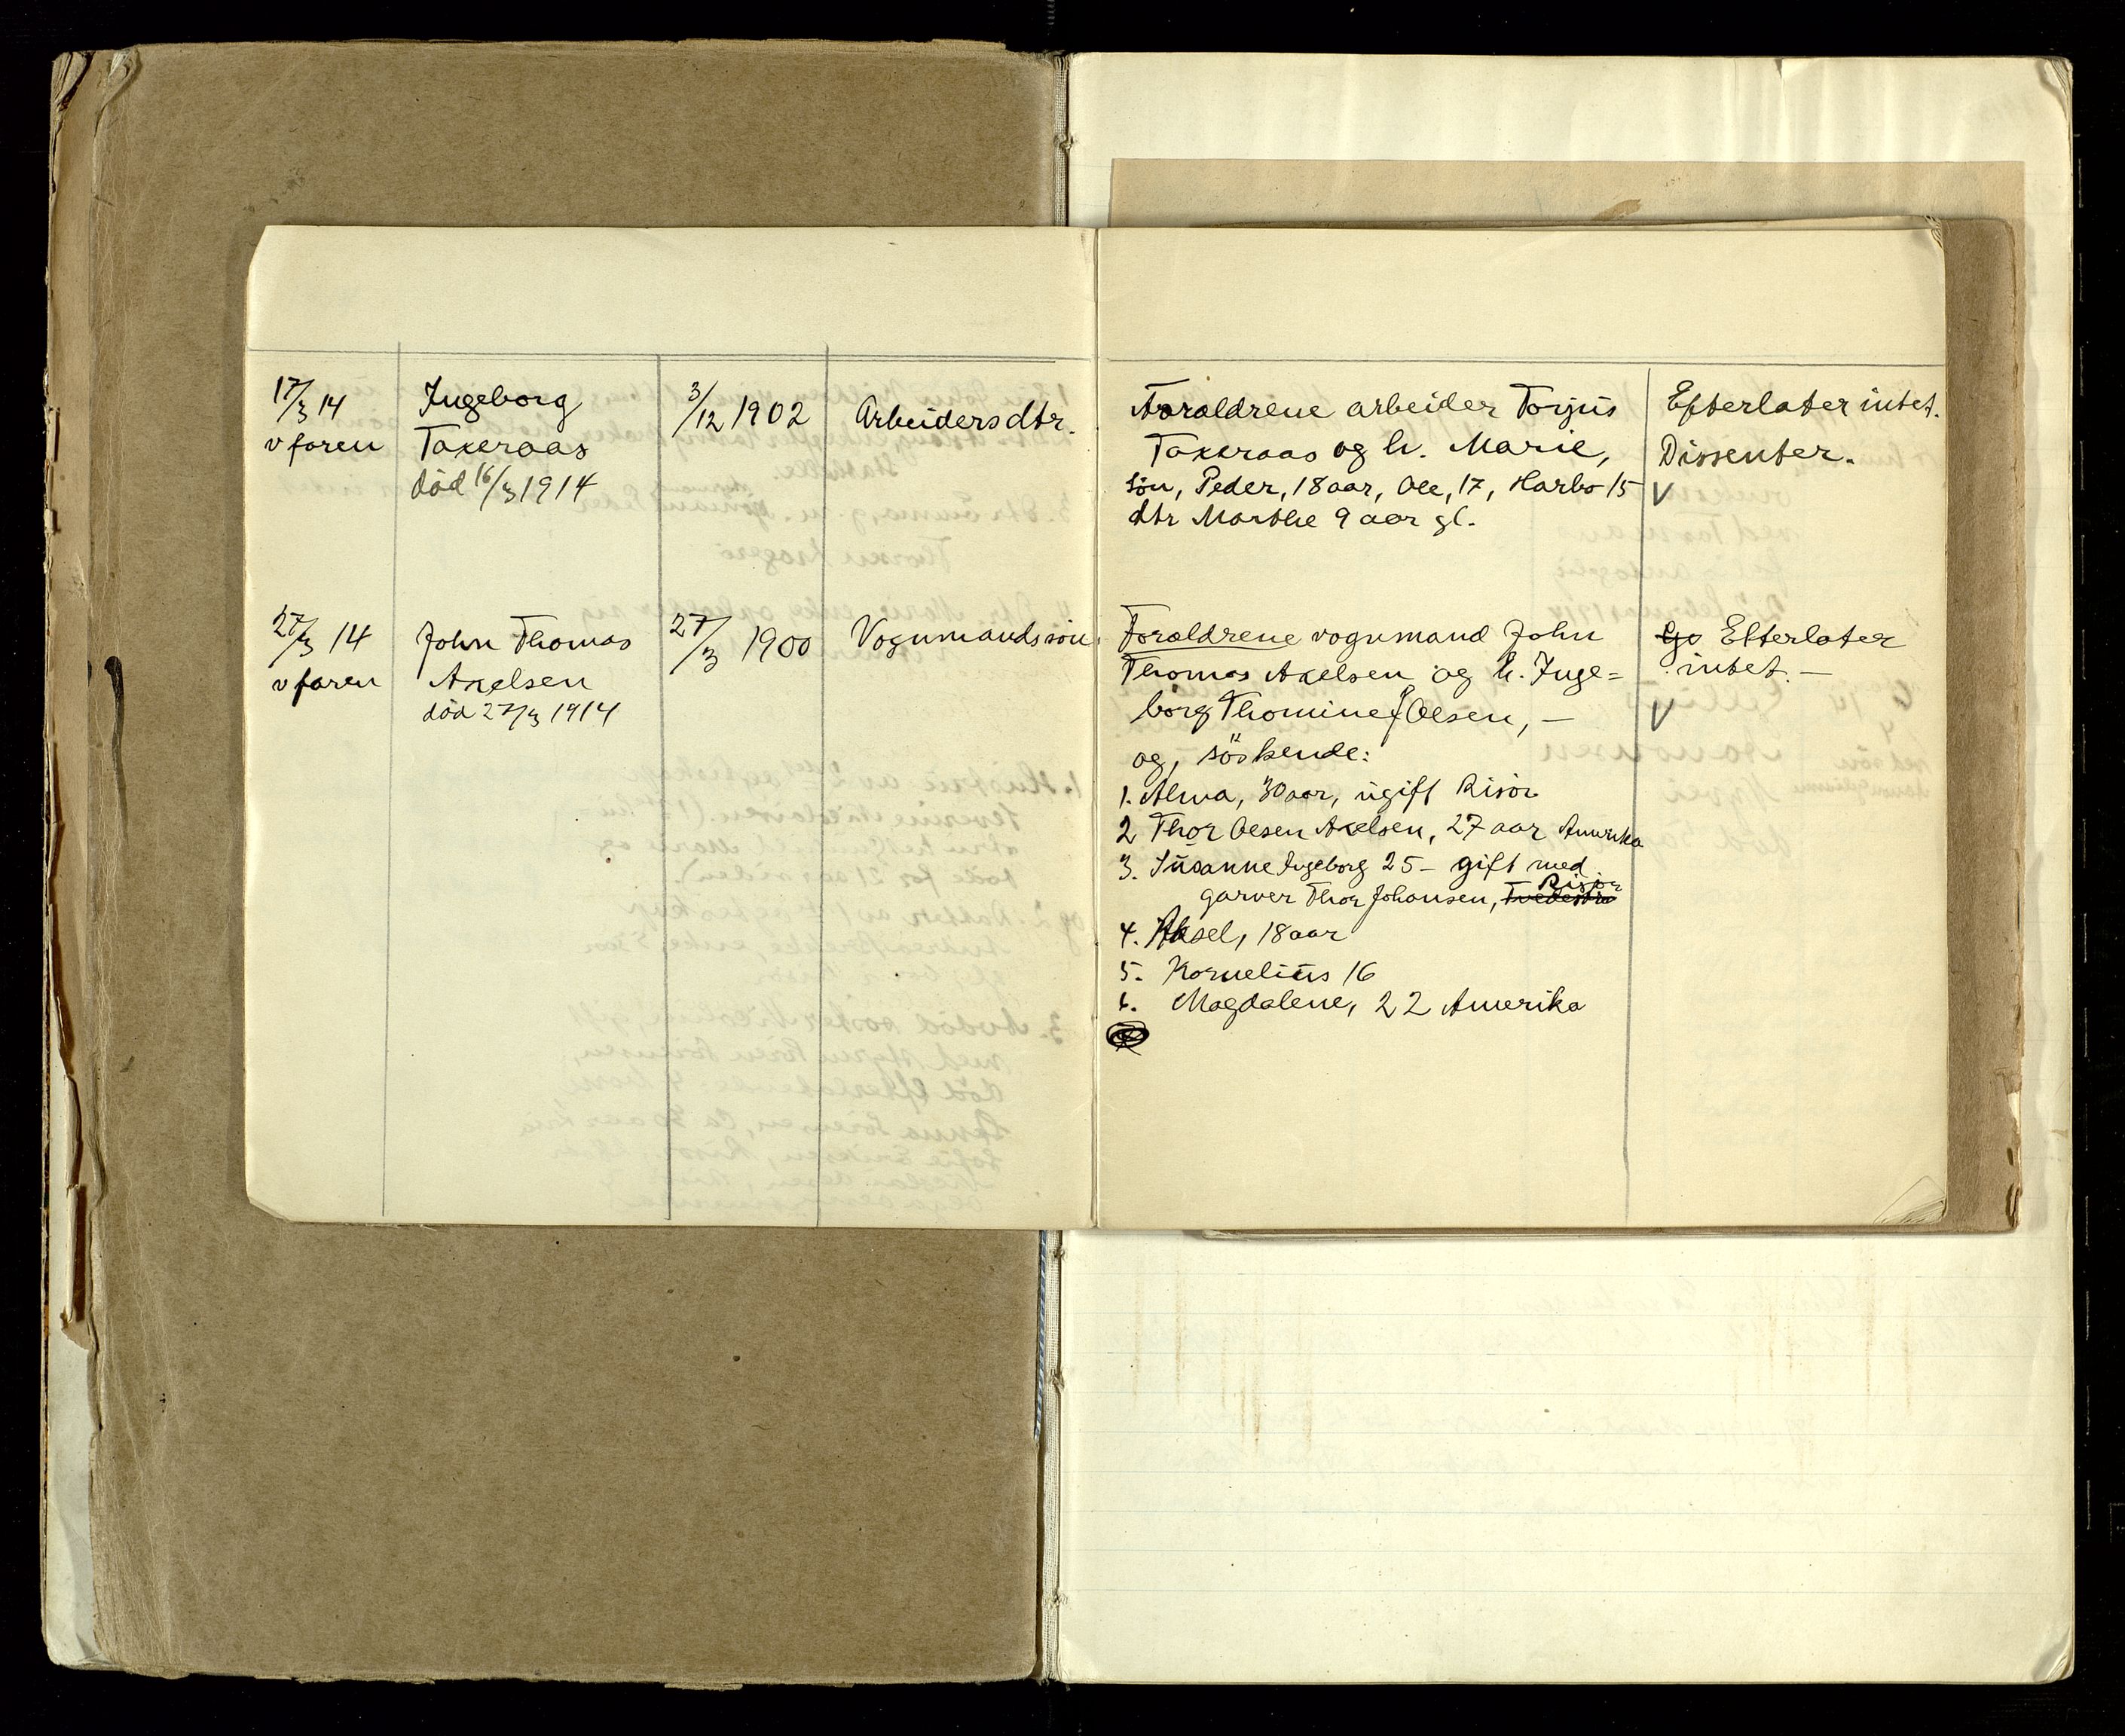 17/3 14
v faren
Ingeborg
Takeraas
död 16/3 1914
3/12 1902
Arbeidersdtr.
Foraldrene arbeider Torjus
Takeraas og h. Marie,
sön, Peder, 18 aar, Ole, 17, Harbo 15
dtr Marthe 9 aar gl.
Efterlater intet.
Dissenter.
V
27/3 14
v faren
John Thomas
Axelsen
död 27/3 1914
27/3 1900
Vognmandssön.
Foraldrene vognmand John
Thomas Axelsen og h. Inge=
borg Thomine f Olsen, —
og, söskende:
1. Alma, 30 aar, ugift Risör
2 Thor Olsen Axelsen, 27 aar Amerika
3. Susanne Ingeborg 25 – gift med
garver Thor Johansen, Risör
4. Aksel, 18 aar
5. Kornelius 16
6. Magdalene, 22 Amerika
Efterlater
intet. —
V